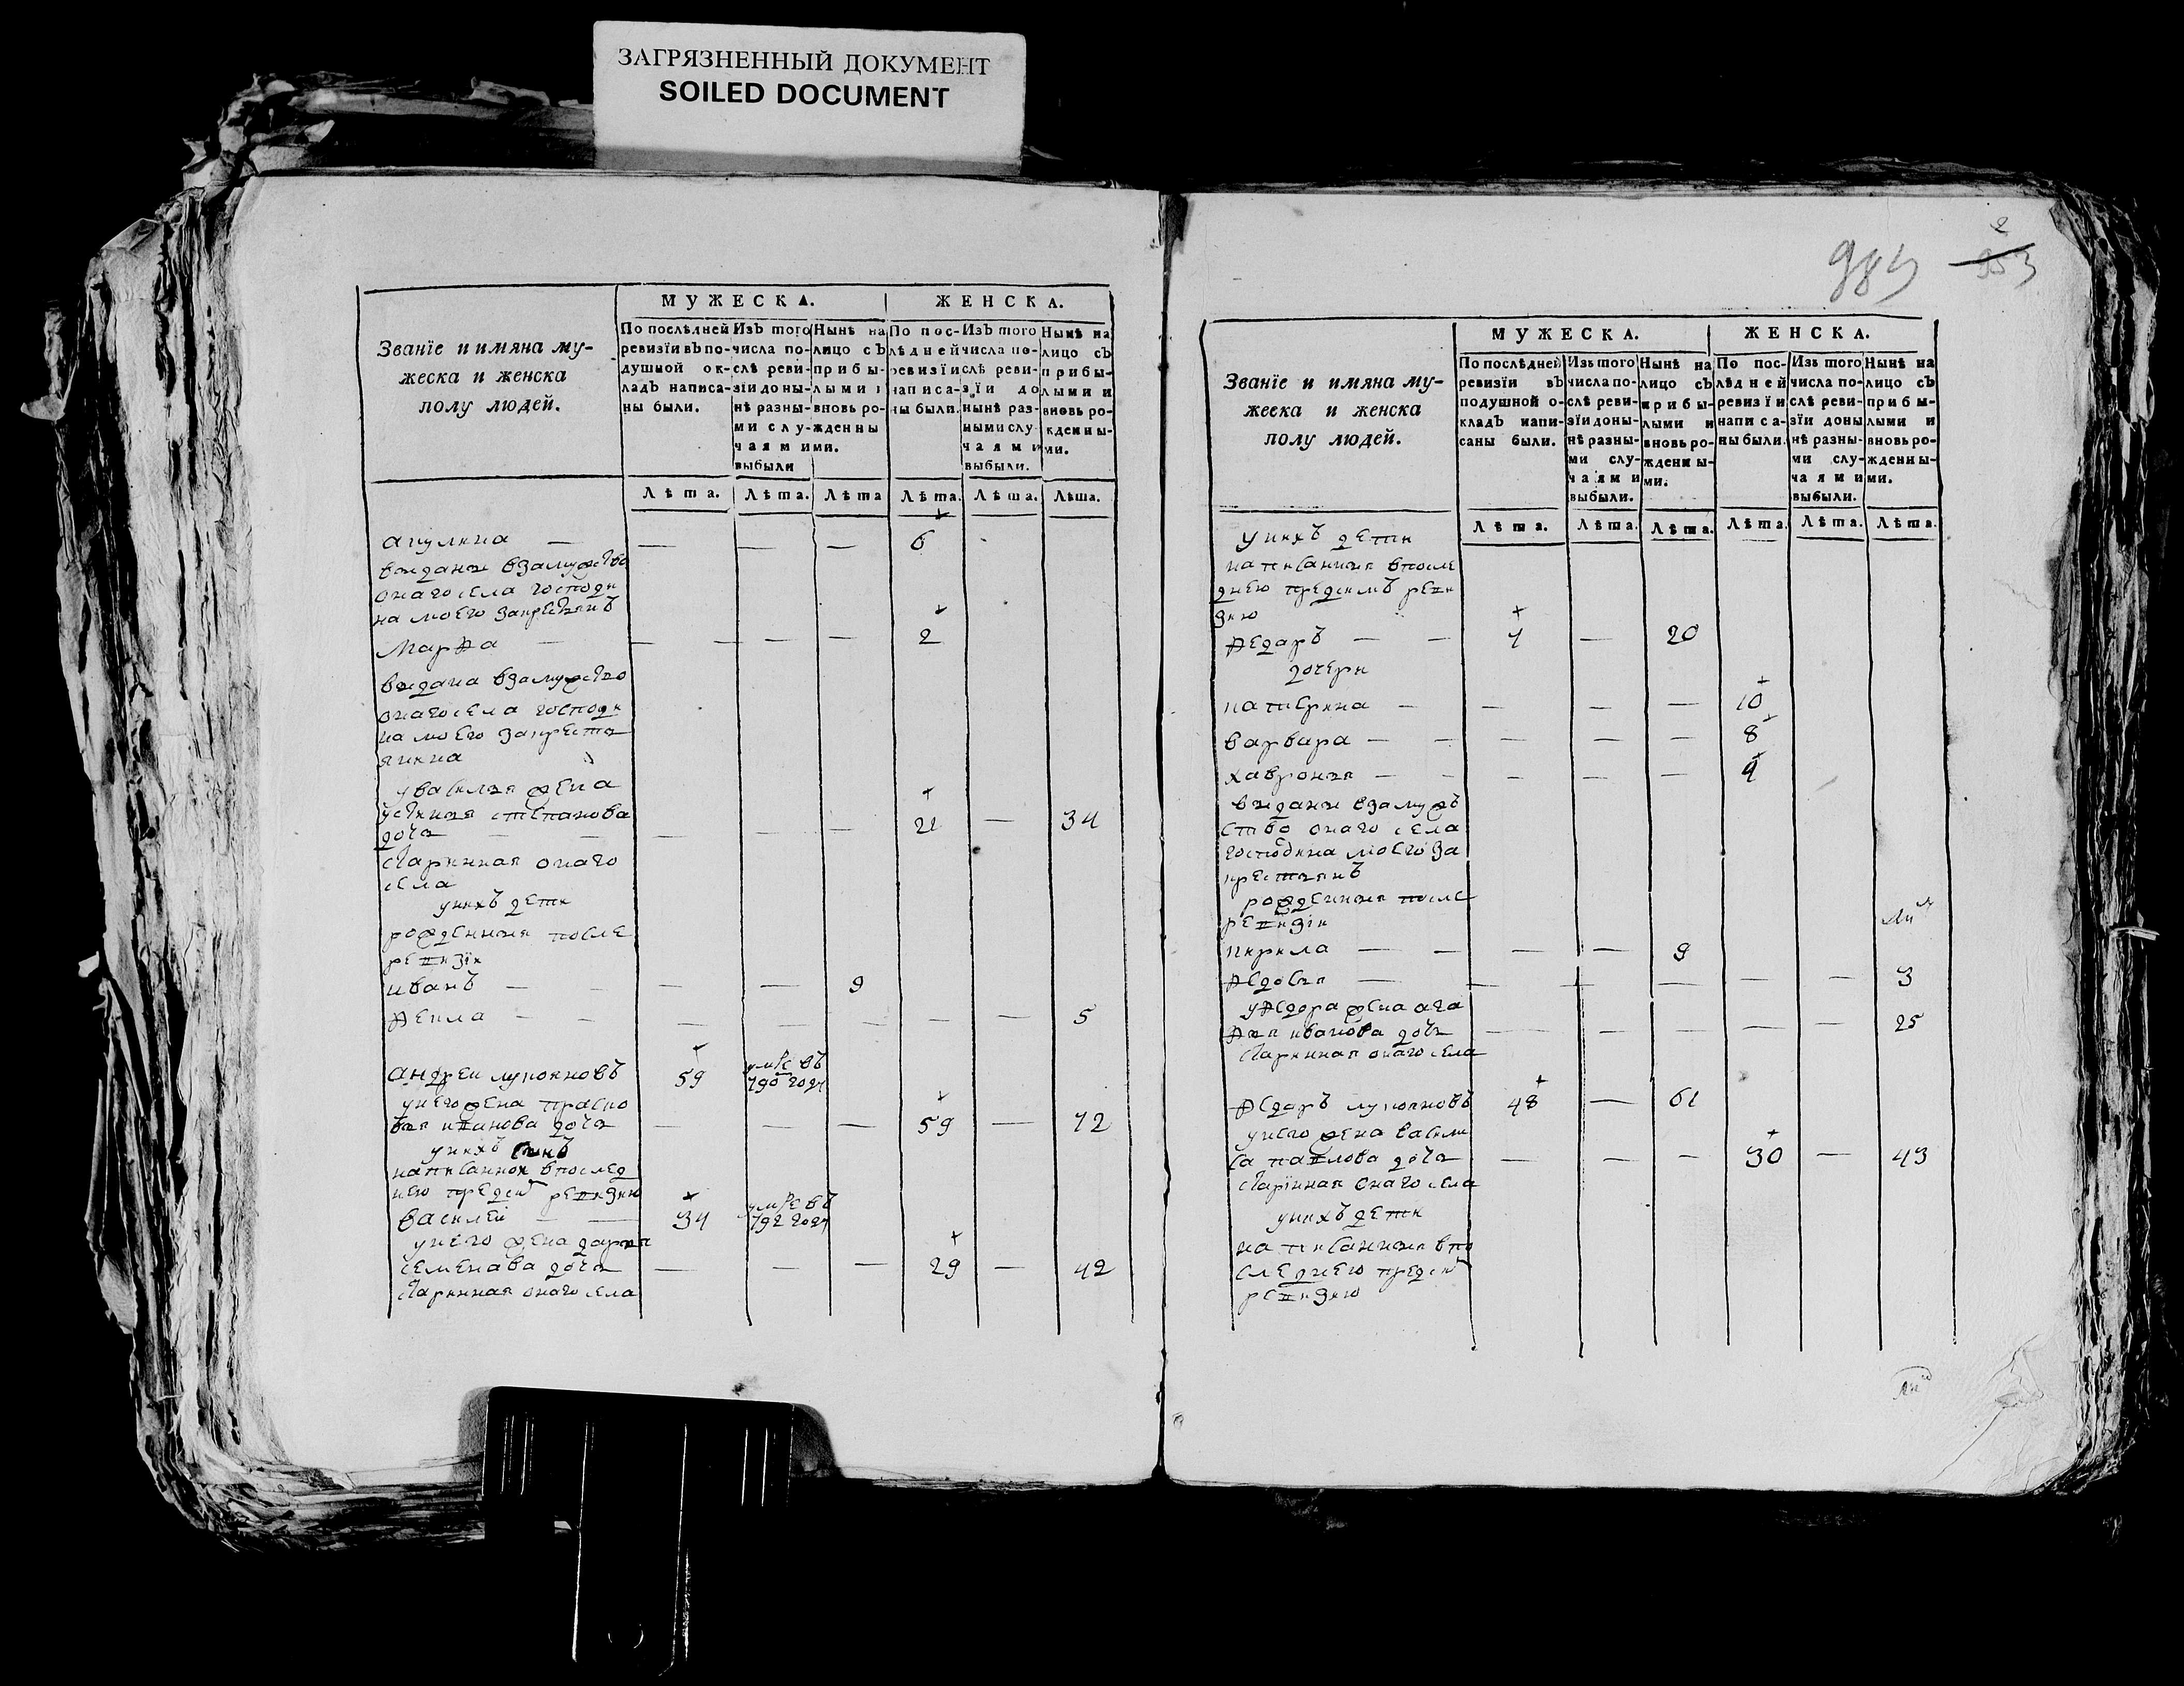 ЗАГРЯЗНЕННЫЙ ДОКУМЕНТ
SOILED DOCUMENT
Званїе и имяна му-
жеска и женска
полу людей.
МУЖЕСКА.
ЖЕНСКА.
По послѣдней
ревизїи въ по-
душной ок-
ладъ написа-
ны были.
Изъ того
числа по-
слѣ реви-
зїи доны-
нѣ разны-
ми слу-
чаями
выбыли
Нынѣ на
лицо съ
прибы-
лыми и
вновь ро-
жденны
ми.
По пос-
лѣдней
ревизїи
написа-
ны были.
Изъ того
числа по-
слѣ реви-
зїи до
нынѣ раз-
ными слу-
чаями
выбыли.
Нынѣ на
лицо съ
прибы-
лыми и
вновь ро-
жденны-
ми.
Лѣта. Лѣта. Лѣта Лѣта. Лѣта. Лѣта.
акулина — — — — 6
выданы взамужство
онаго села господи
на моего закрестьянъ
Марфа — — — — 2
выдана взамужство
онаго села господи
на моего закрестья
янина
у василья жена
устинья степанова
дочь — — — 21 — 34
старинная онаго
села
у нихъ дети
рожденныя после
ревизїи
иванъ — — — 9
фекла — — — — — — 5
Андрей лукояновъ 59 умре въ
790 году
у него жена праско
вья иванова дочь — — — 59 — 72
у нихъ сынъ
написанной в послед
нею пред сим ревизию
василей — 34 умре въ
792 году
у него жена дарья
семенава дочь — — — 29 — 42
старинная онаго села
985
Званїе и имяна му-
жеска и женска
полу людей.
МУЖЕСКА.
ЖЕНСКА.
По послѣдней
ревизїи въ
подушной о-
кладъ напи-
саны были.
Изъ того
числа по-
слѣ реви-
зїи доны-
нѣ разны-
ми слу-
чаями
выбыли.
Нынѣ на
лицо съ
прибы-
лыми и
вновь ро-
жденны-
ми.
По пос-
лѣдней
ревизїи
написа-
ны были.
Изъ того
числа по-
слѣ реви-
зїи доны
нѣ разны-
ми слу-
чаями
выбыли.
Нынѣ на
лицо съ
прибы-
лыми и
вновь ро-
жденны-
ми.
Лѣта. Лѣта. Лѣта. Лѣта. Лѣта. Лѣта.
у нихъ дети
написанныя в после
днею пред симъ реви
зию
федаръ — — 7 — 20
дочери
катерина — — — — 10
варвара — — — — — 8
хавронья — — — — —
выданы взамужъ
ство онаго села
господина моего за
крестьянъ
рожденныя после
ревизїи
кирила — — — — 9
федосья — — — — — — 3
у федора жена ага
фья иванова дочь — — — — — 25
старинная онаго села
федаръ лукояновъ 48 — 61
у него жена васили
са павлова дочь — — — 30 — 43
старинная онаго села
у нихъ дети
написанныя в по
следнею пред сим
ревизию